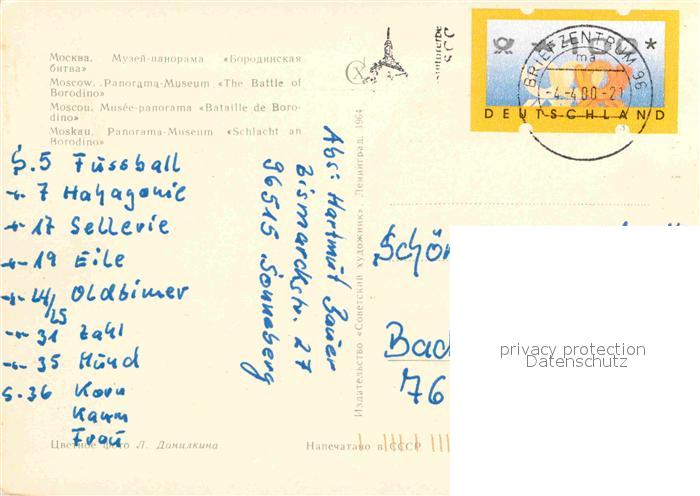 Москва. Музей-панорама «Бородинская
битва»
Moscow. Panorama-Museum «The Battle of
Borodino»
Moscou. Musée-panorama «Bataille de Boro-
dino»
Moskau. Panorama-Museum «Schlacht an
Borodino»
S. 5 Fussball
-"- 7 Mahagonie
-"- 17 Sellerie
-"- 19 Eile
-"- 24/25 Oldtimer
-"- 31 Zahl
-"- 35 Mund
S. 36 Korn
Kamm
Frau
Цветное фото Л. Данилкина
Abs: Hartmut Bauer
Bismarckstr. 27
96515 Sonneberg
Издательство «Советский художник». Ленинград. 1964
Напечатано в СССР
BRIEFZENTRUM 96
ma
-4.-4.00-21
DEUTSCHLAND
Schön
Bad
76
privacy protection
Datenschutz